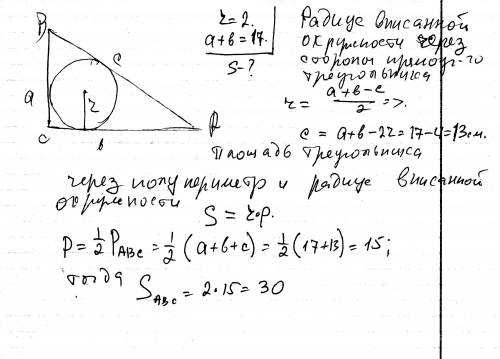 B
a
c
r
C
b
A
r=2.
a+b=17.
S-?
Радиус вписанной
окружности через
стороны прямоуг-го
треугольника
r = (a+b-c)/2 =>.
c = a+b-2r=17-4=13см.
Площадь треугольника
через полупериметр и радиус вписанной
окружности
S = r·p.
P = 1/2 P_ABC = 1/2 (a+b+c) = 1/2 (17+13) = 15;
тогда
S_ABC = 2·15 = 30